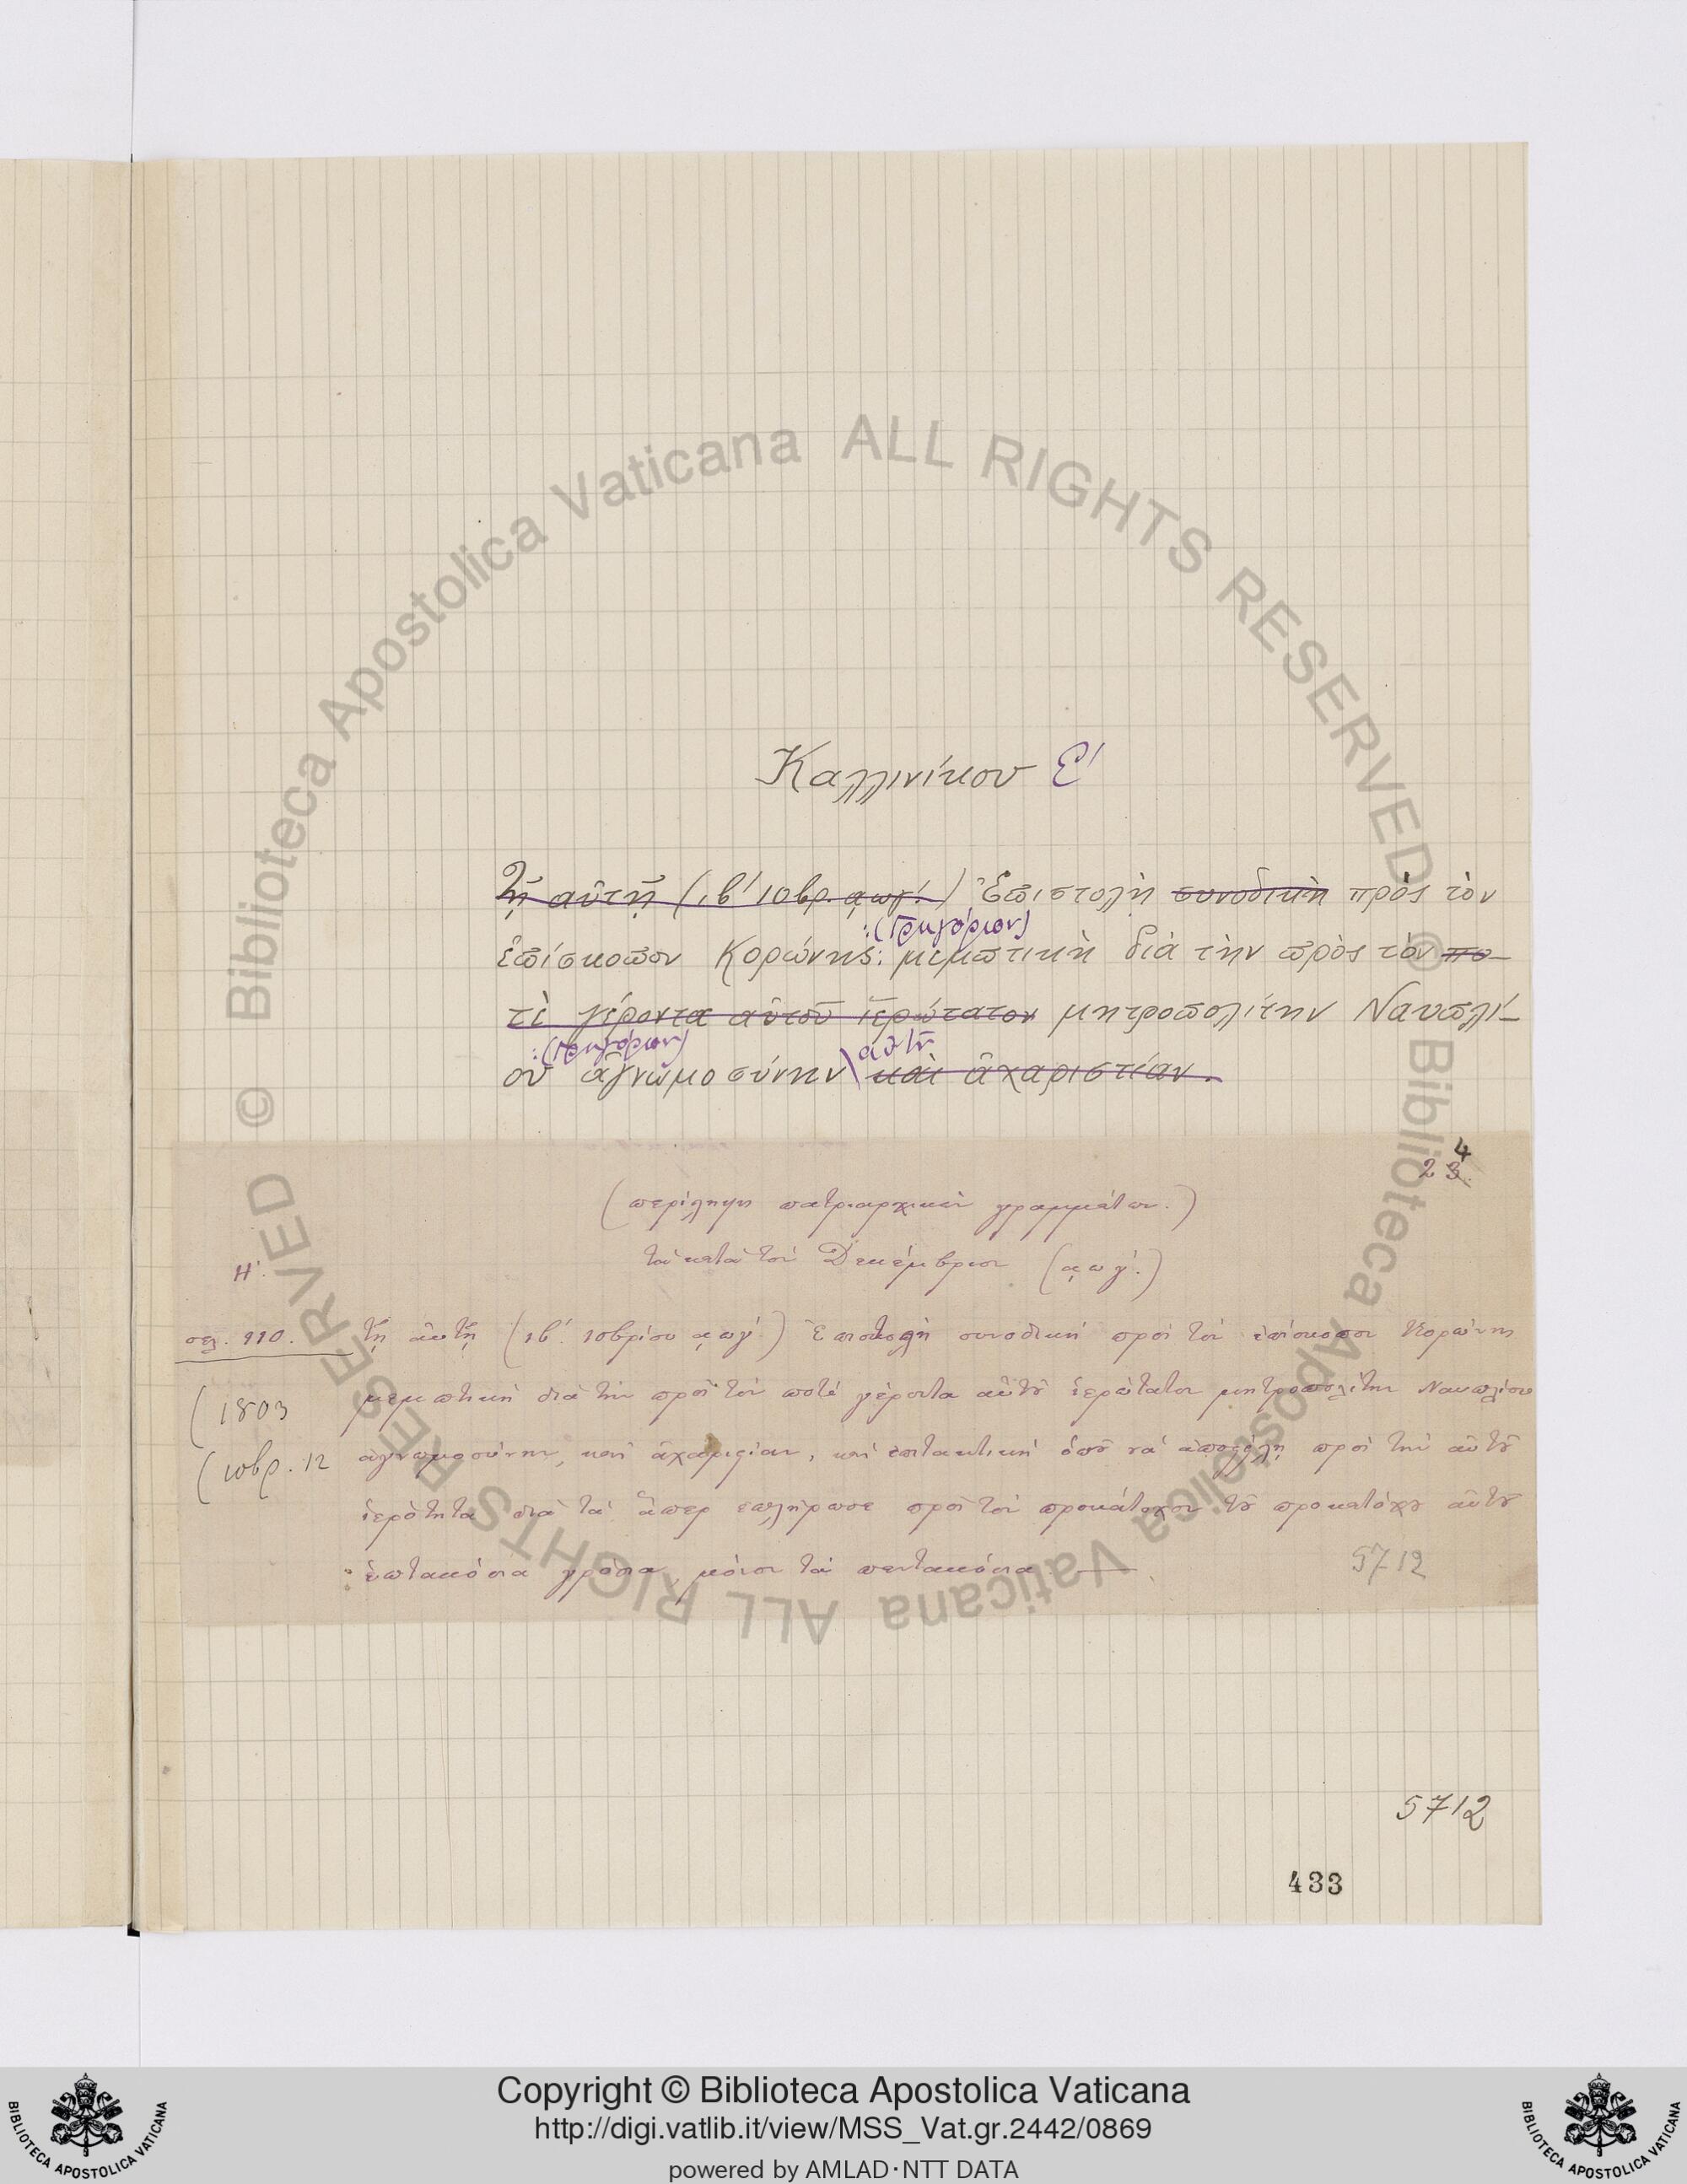 Καλλινίκου Ε΄
Τῇ αὐτῇ (ιβ΄ 10βρ. ͵αωγ΄.) Ἐπιστολὴ συνοδικὴ πρὸς τὸν
:(Γρηγόριον)
ἐπίσκοπον Κορώνης: μεμπτικὴ διὰ τὴν πρὸς τὸν πο-
τὲ γέροντα αὐτοῦ ἱερώτατον μητροπολίτην Ναυπλί-
:(Γρηγόριον) αὐτοῦ
ου ἀγνωμοσύνην καὶ ἀχαριστίαν.
4
23.
(περίληψη πατριαρχικῶν γραμμάτων.)
τὰ κατὰ τὸν Δεκέμβριον (͵αωγ΄.)
Η΄.
σελ. 110. τῇ αὐτῇ (ιβ΄. 10βρίου ͵αωγ΄) Ἐπιστολὴ συνοδικὴ πρὸς τὸν ἐπίσκοπον Κορώνης
(1803 μεμπτικὴ διὰ τὴν πρὸς τὸν ποτὲ γέροντα αὐτοῦ ἱερώτατον μητροπολίτην Ναυπλίου
(10βρ. 12 ἀγνωμοσύνην, καὶ ἀχαριστίαν, καὶ ἐπιτακτικὴ ὁποῦ νὰ ἀποστείλῃ πρὸς τὴν αὐτοῦ
ἱερότητα διὰ τὰ ἅπερ ἐπλήρωσε πρὸς τὸν προκάτοχον τοῦ προκατόχου αὐτοῦ
ἑπτακόσια γρόσια, μόνον τὰ πεντακόσια.
5712
5712
433
Copyright © Biblioteca Apostolica Vaticana
http://digi.vatlib.it/view/MSS_Vat.gr.2442/0869
powered by AMLAD·NTT DATA
BIBLIOTECA APOSTOLICA VATICANA
BIBLIOTECA APOSTOLICA VATICANA
© Biblioteca Apostolica Vaticana ALL RIGHTS RESERVED
© Biblioteca Apostolica Vaticana ALL RIGHTS RESERVED